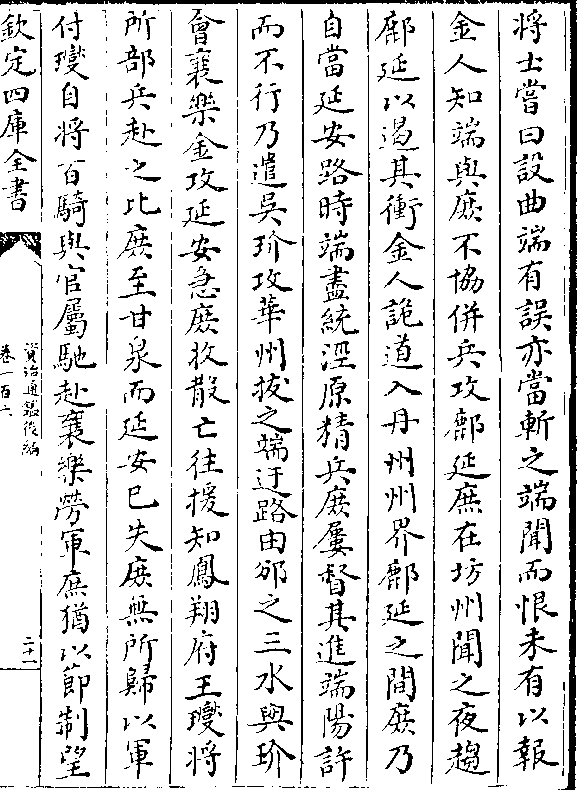 將士嘗曰設曲端有誤亦當斬之端聞而恨未有以報
金人知端與庶不協併兵攻鄜延庶在坊州聞之夜趨
鄜延以遏其衝金人詭道入丹州州界鄜延之間庶乃
自當延安路時端盡統涇原精兵庶屢督其進端陽許
而不行乃遣吳玠攻華州拔之端迂路由邠之三水與玠
會襄樂金攻延安急庶收散亡往援知鳳翔府王𤫉將
所部兵赴之比庶至甘泉而延安已失庶無所歸以軍
付𤫉自將百騎與官屬馳赴襄樂勞軍庶猶以節制望
欽定四庫全書
資治通鑑後編
卷一百六
二十一